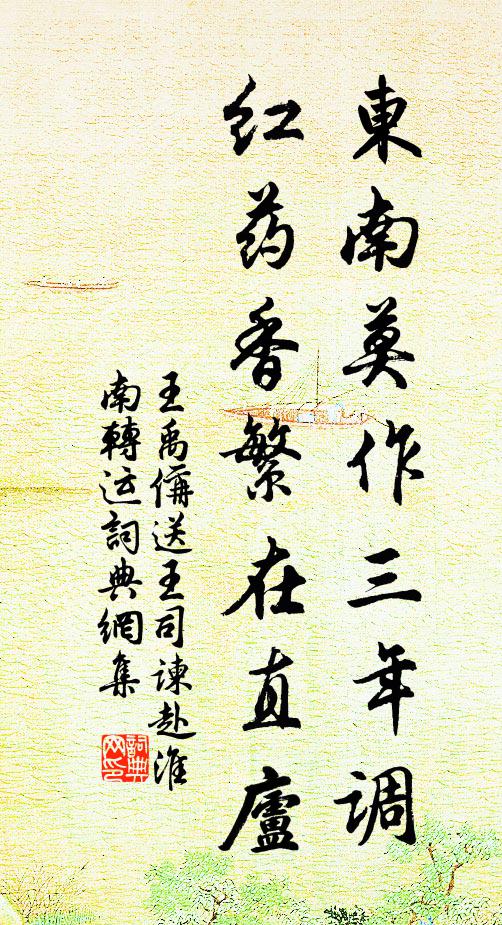 東南莫作三年調
红药香繁在直廬
王禹偁送王司諫赴淮
南轉运詞典網集
詞典网印